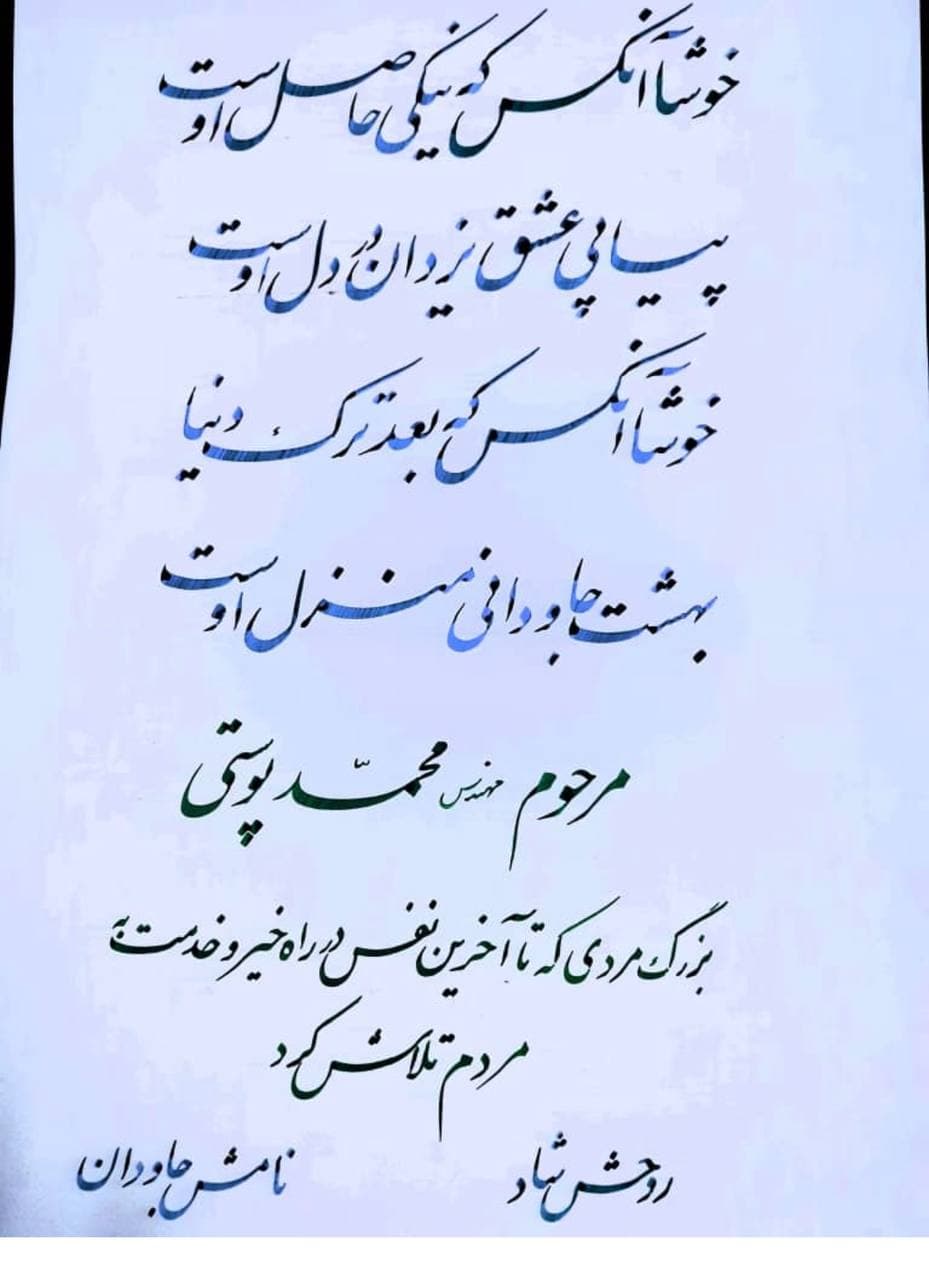 خوشا آنکس که نیکی حاصل اوست
پیاپی عشق یزدان در دل اوست
خوشا آنکس که بعد ترک دنیا
بهشت جاودانی منزل اوست
مرحوم مهندس محمّد پوستی
بزرگ مردی که تا آخرین نفس در راه خیر و خدمت به
مردم تلاش کرد
روحش شاد نامش جاودان